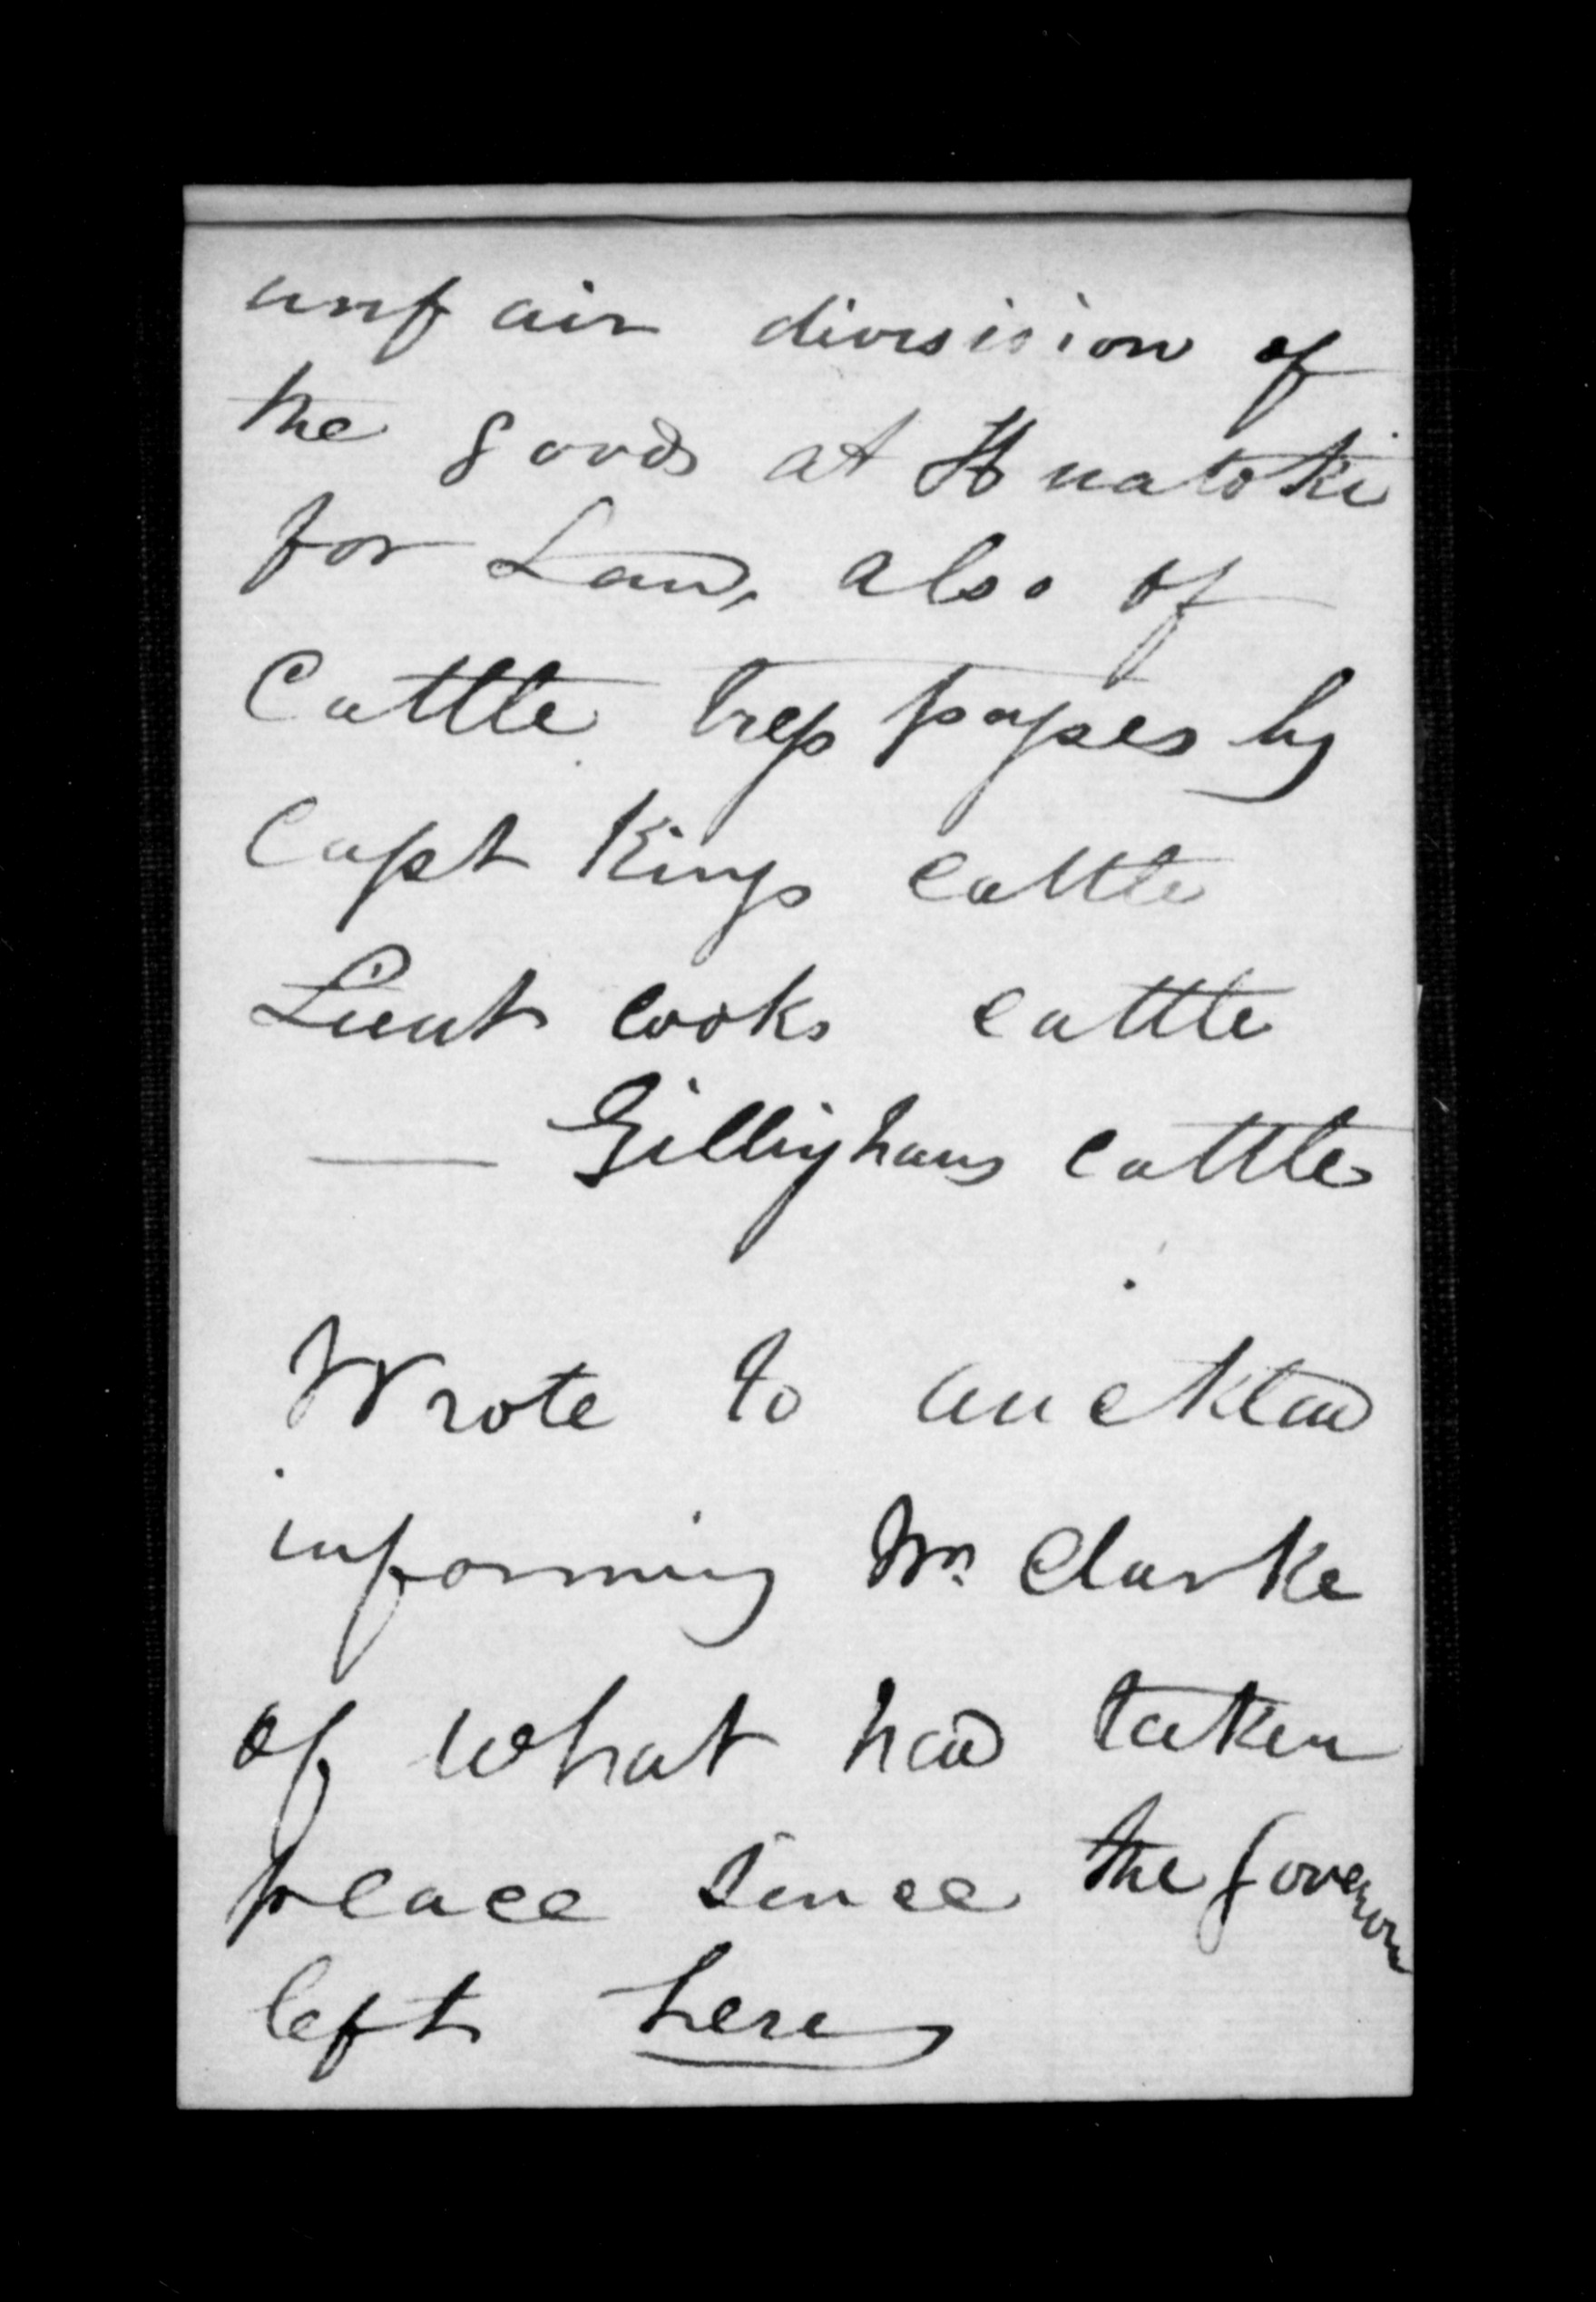 unfair divisiion of
the goods at Huatoki
for Land, also of
Cattle trespasses by
Capt Kings cattle
Lieut Cooks cattle
— Gillinghams cattle
Wrote to auckland
informing Mr. Clarke
of what had taken
place since the Governor
left here